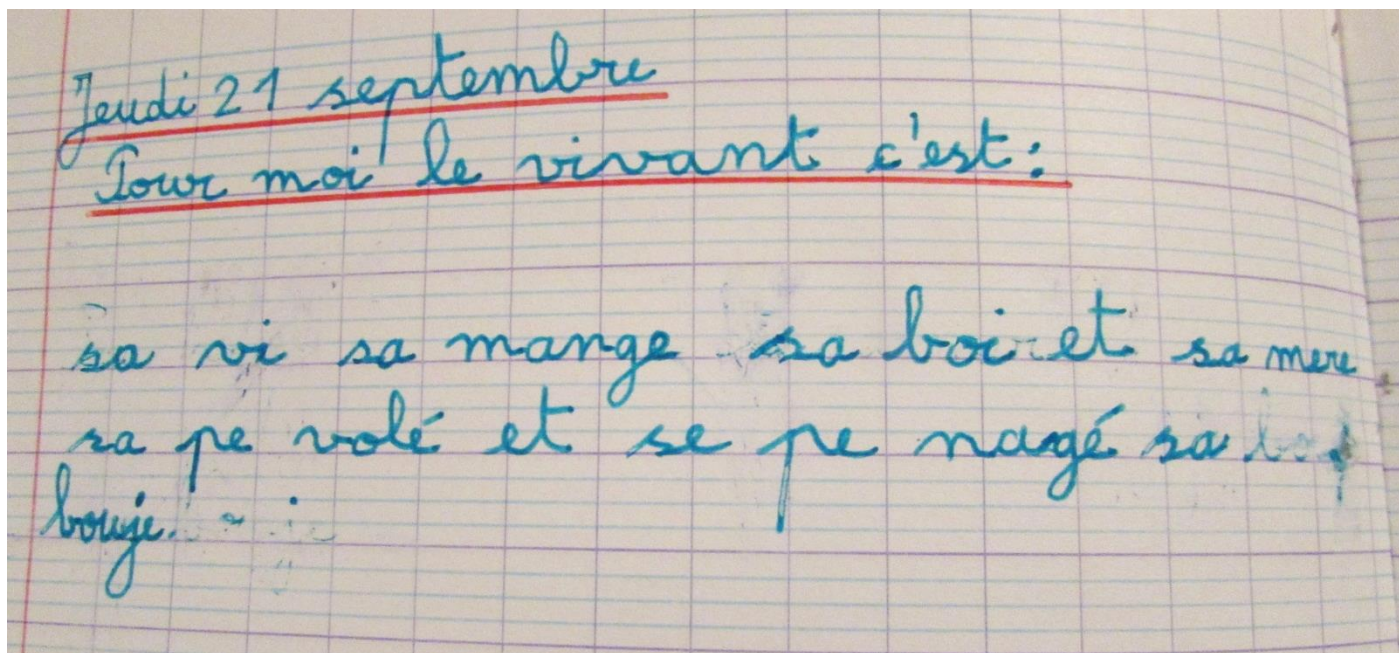 Jeudi 21 septembre
Pour moi le vivant c'est:
sa vi sa mange sa boi et sa mere
sa pe volé et se pe nagé sa
bouje.